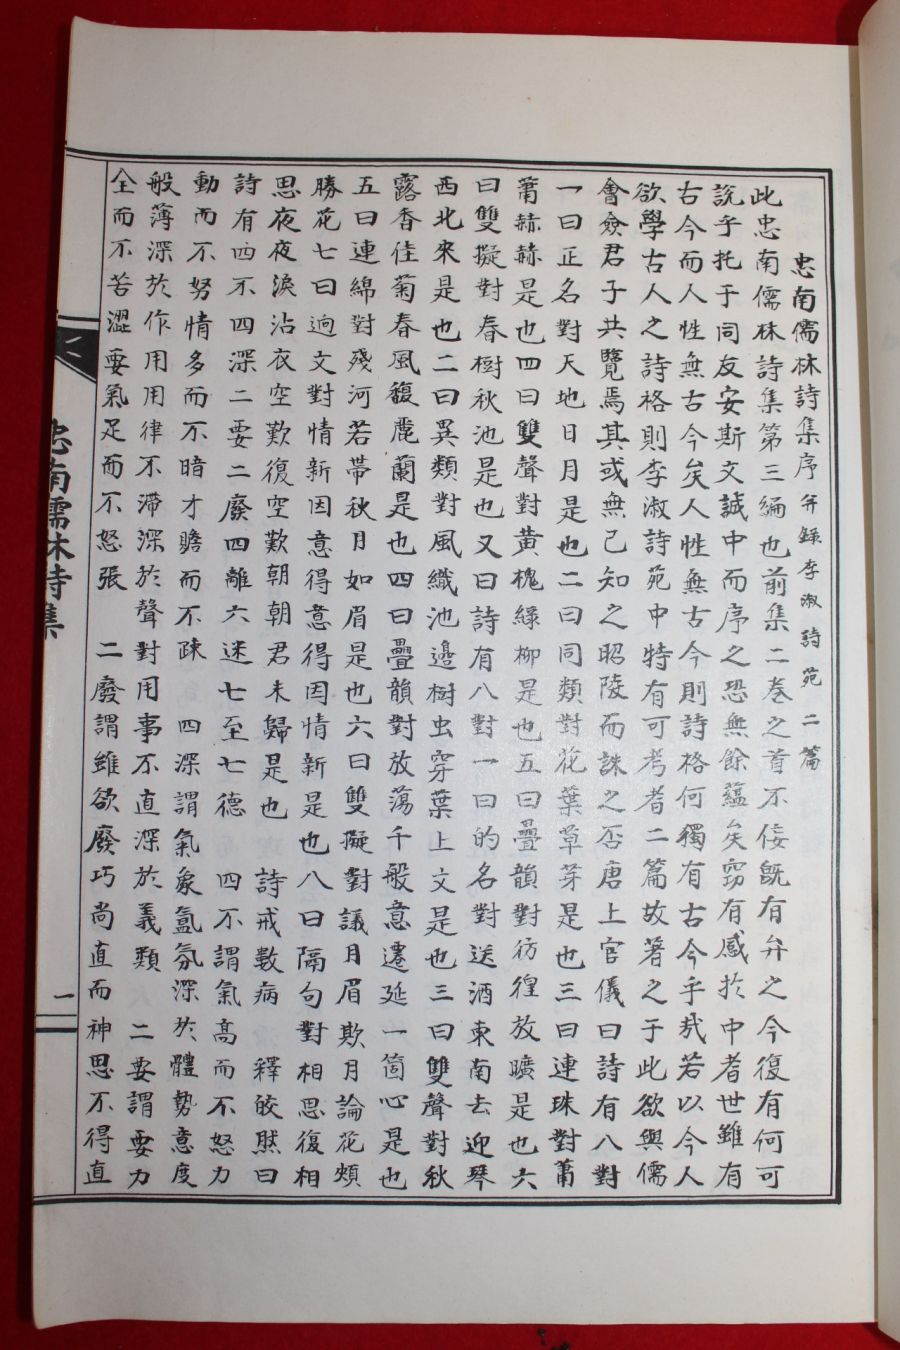 忠南儒林詩集序 弁錄李淑詩苑二篇
此忠南儒林詩集第三編也前集二卷之首不佞旣有弁之今復有何可
説乎托于同友安斯文誠中而序之恐無餘蘊矣窃有感於中者世雖有
古今而人性無古今矣人性無古今則詩格何獨有古今乎哉若以今人
欲學古人之詩格則李淑詩苑中特有可考者二篇故著之于此欲與儒
會僉君子共覽焉其或無己知之昭陵而誅之否唐上官儀曰詩有八對
一曰正名對天地日月是也二曰同類對花葉草芽是也三曰連珠對蕭
蕭赫赫是也四曰雙聲對黃槐綠柳是也五曰疊韻對彷徨放曠是也六
曰雙擬對春樹秋池是也又曰詩有八對一曰的名對送酒東南去迎琴
西北來是也二曰異類對風織池邊樹虫穿葉上文是也三曰雙聲對秋
露香佳菊春風馥麗蘭是也四曰疊韻對放荡千般意遷延一箇心是也
五曰連綿對殘河若帶秋月如眉是也六曰雙擬對議月眉欺月論花頰
勝花七曰逈文對情新因意得意得因情新是也八曰隔句對相思復相
思夜夜淚沾衣空歎復空歎朝朝君未歸是也 詩戒數病 釋皎然曰
詩有四不四深二要二廢四離六迷七至七德 四不謂氣高而不怒力
動而不努情多而不暗才贍而不疎 四深謂氣象氤氛深於體勢意度
般薄深於作用用律不滯深於聲對用事不直深於義類 二要謂要力
全而不苦澀要氣足而不怒張 二廢謂雖欲廢巧尚直而神思不得直
忠南儒林詩集
一